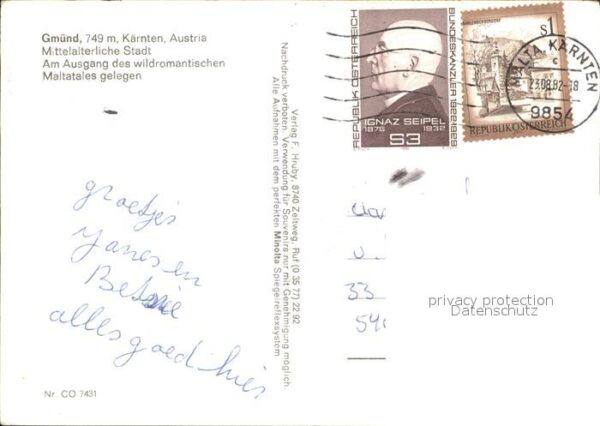 Gmünd, 749 m, Kärnten, Austria
Mittelalterliche Stadt
Am Ausgang des wildromantischen
Maltatales gelegen
groetjes
alles goed hier
Nr. CO 7431
Verlag F. Hruby, 8740 Zeltweg, Ruf (0 35 77) 22 92
Nachdruck verboten. Verwendung für Souvenirs nur mit Genehmigung möglich.
Alle Aufnahmen mit dem perfekten Minolta Spiegelreflexsystem
REPUBLIK ÖSTERREICH
BUNDESKANZLER 1922-1929
IGNAZ SEIPEL
1876 1932
S3
S1
REPUBLIK ÖSTERREICH
MALTA, KÄRNTEN
c
23.08.82-18
9854
33
privacy protection
Datenschutz